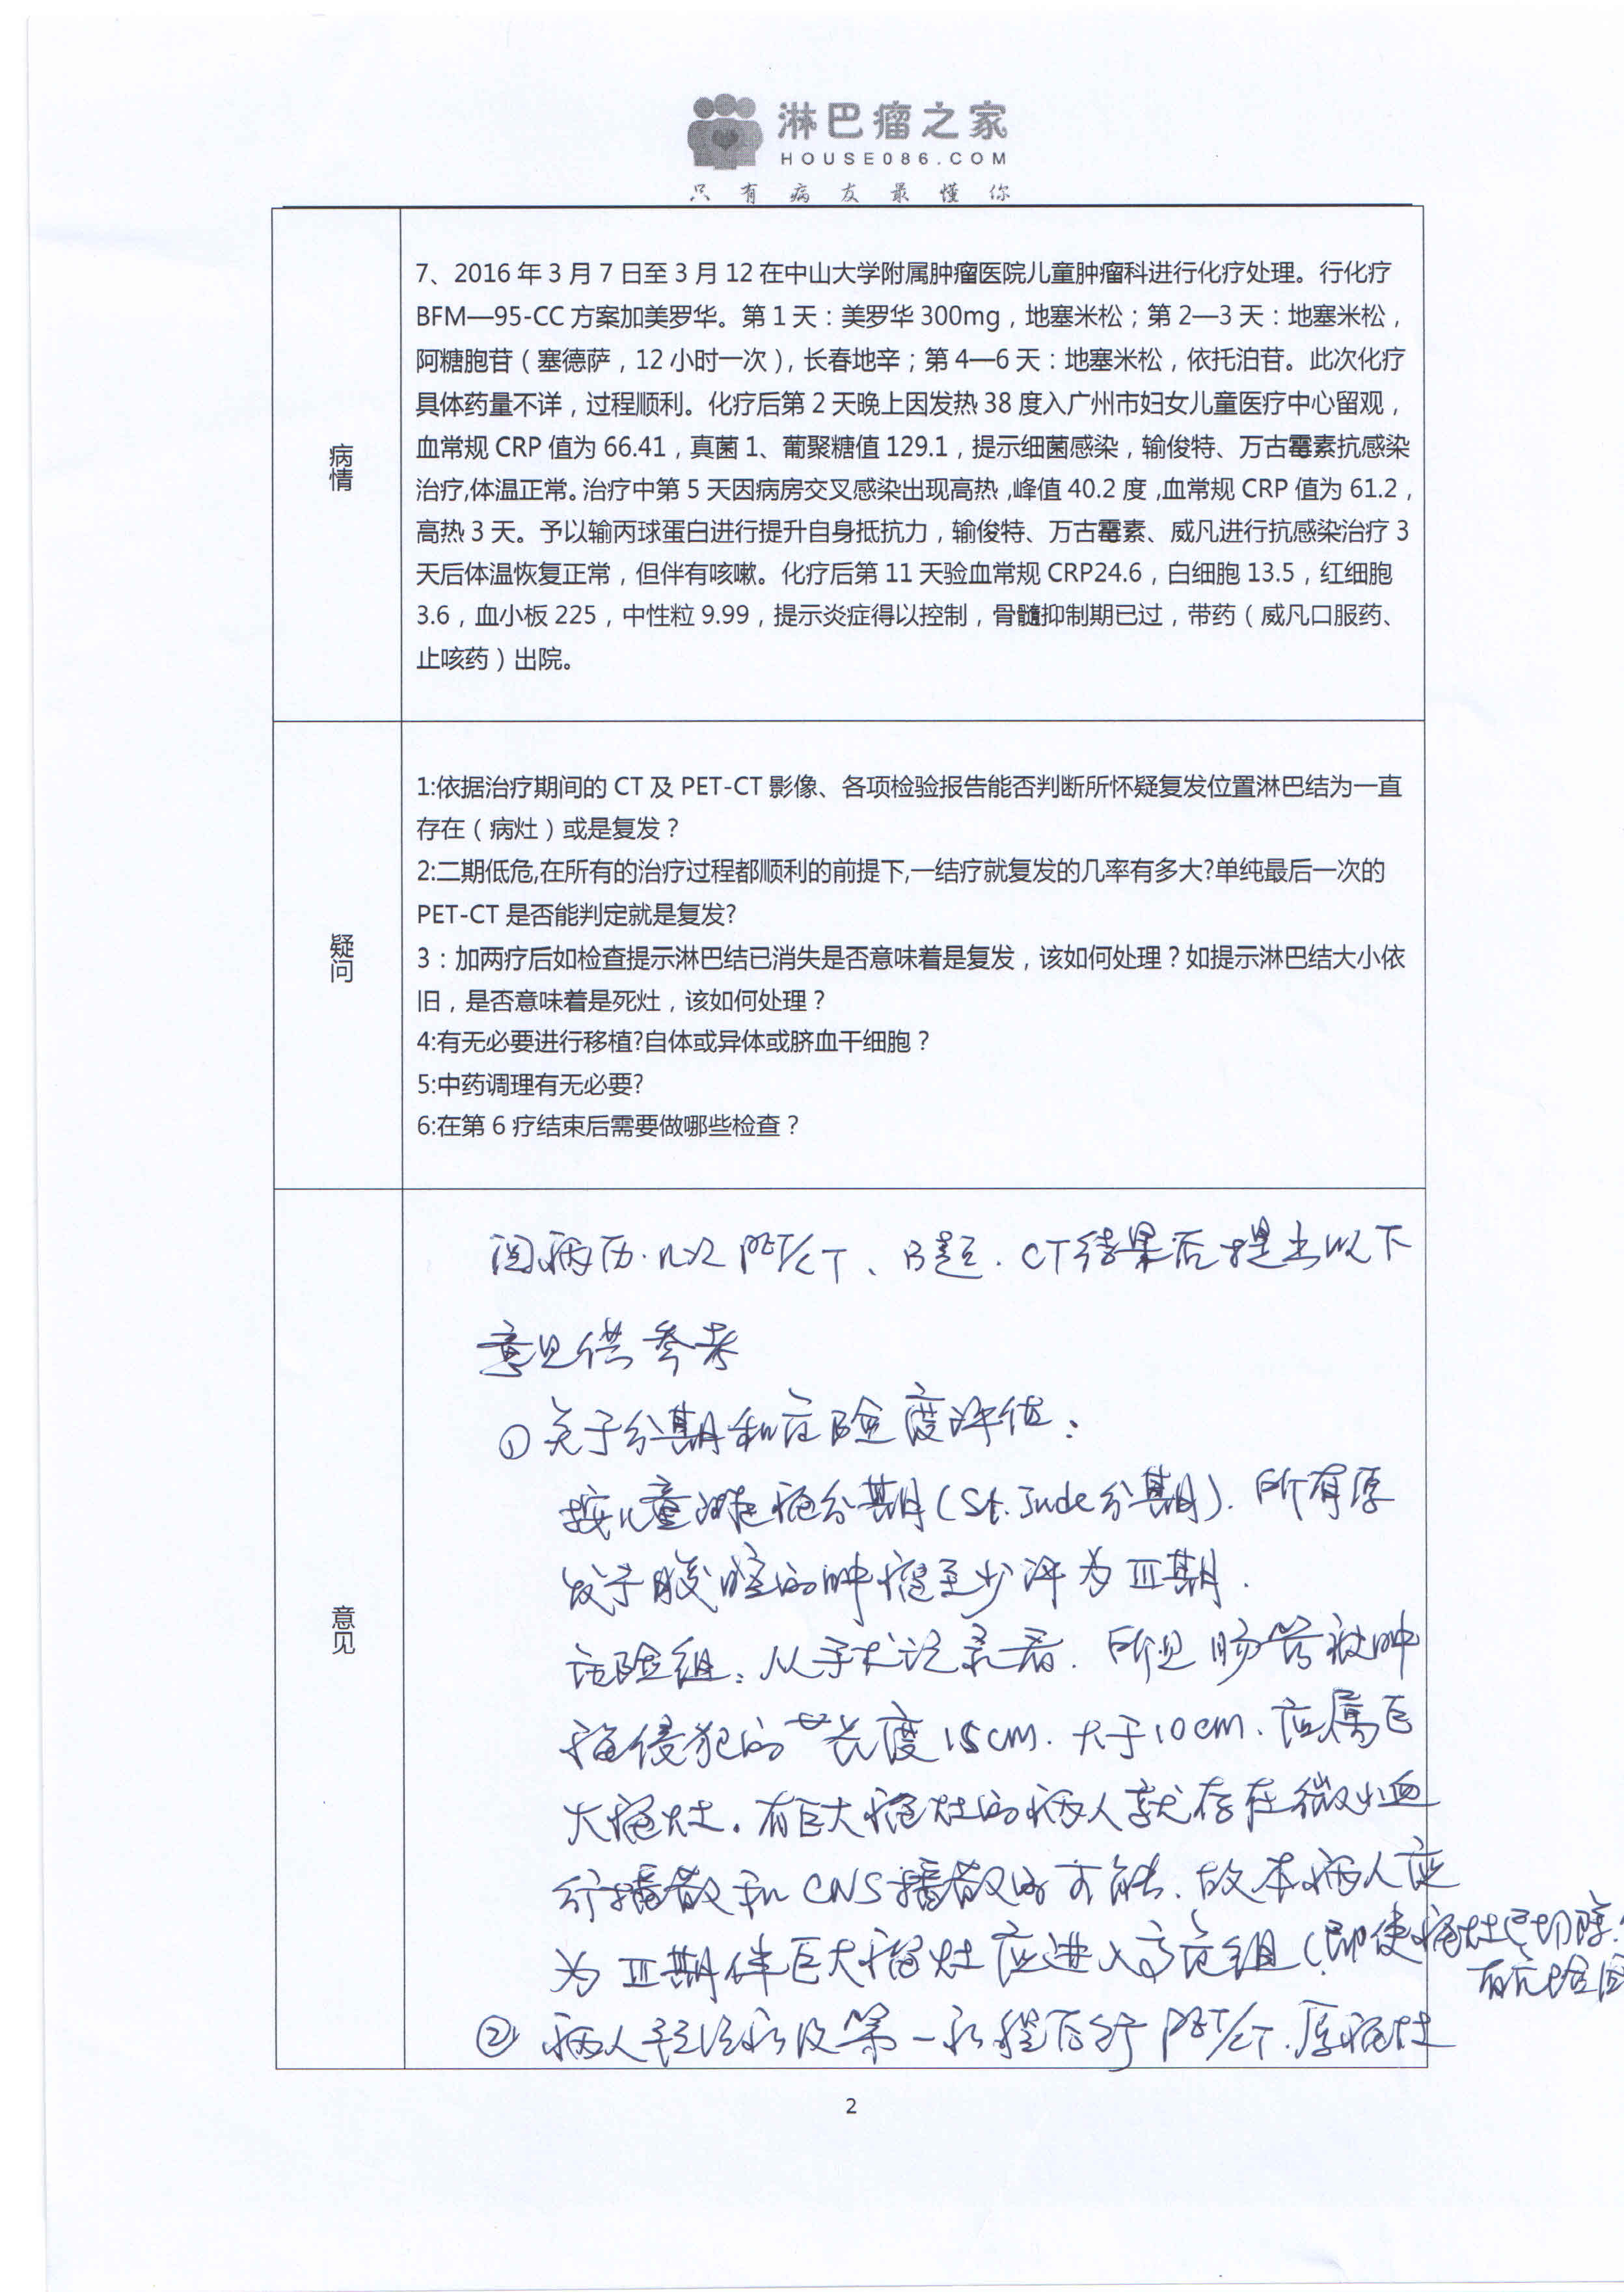 淋巴瘤之家
HOUSE086.COM
只有病友最懂你
病情
7、2016年3月7日至3月12在中山大学附属肿瘤医院儿童肿瘤科进行化疗处理。行化疗
BFM—95-CC方案加美罗华。第1天：美罗华300mg，地塞米松；第2—3天：地塞米松，
阿糖胞苷（塞德萨，12小时一次），长春地辛；第4—6天：地塞米松，依托泊苷。此次化疗
具体药量不详，过程顺利。化疗后第2天晚上因发热38度入广州市妇女儿童医疗中心留观，
血常规CRP值为66.41，真菌1、葡聚糖值129.1，提示细菌感染，输俊特、万古霉素抗感染
治疗,体温正常。治疗中第5天因病房交叉感染出现高热,峰值40.2度,血常规CRP值为61.2，
高热3天。予以输丙球蛋白进行提升自身抵抗力，输俊特、万古霉素、威凡进行抗感染治疗3
天后体温恢复正常，但伴有咳嗽。化疗后第11天验血常规CRP24.6，白细胞13.5，红细胞
3.6，血小板225，中性粒9.99，提示炎症得以控制，骨髓抑制期已过，带药（威凡口服药、
止咳药）出院。
疑问
1:依据治疗期间的CT及PET-CT影像、各项检验报告能否判断所怀疑复发位置淋巴结为一直
存在（病灶）或是复发？
2:二期低危,在所有的治疗过程都顺利的前提下,一结疗就复发的几率有多大?单纯最后一次的
PET-CT是否能判定就是复发?
3：加两疗后如检查提示淋巴结已消失是否意味着是复发，该如何处理？如提示淋巴结大小依
旧，是否意味着是死灶，该如何处理？
4:有无必要进行移植?自体或异体或脐血干细胞？
5:中药调理有无必要?
6:在第6疗结束后需要做哪些检查？
意见
阅病历.几次PET/CT、B超.CT结果后提出以下
意见供参考
①关于分期和危险度评估：
按儿童淋巴瘤分期(St.Jude分期).所有原
发于腹腔的肿瘤至少评为Ⅲ期.
危险组：从手术记录看.所见肠管被肿
瘤侵犯的长度15cm.大于10cm.应属巨
大瘤灶.有巨大瘤灶的病人就存在微小血
行播散和CNS播散的可能.故本病人应
为Ⅲ期伴巨大瘤灶应进入高危组(即使瘤灶已切除.
②病人经治疗及第一疗程后行PET/CT.原瘤灶
2